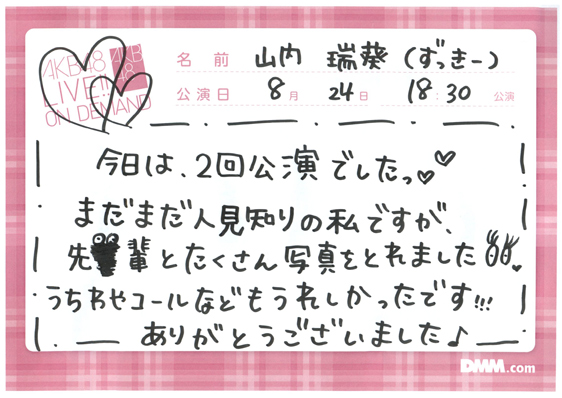 AKB48
LIVE!! ON DEMAND
名前 山内 瑞葵 (ずっきー)
公演日 8月 24日 18:30 公演
今日は、2回公演でしたっ♥♥
まだまだ人見知りの私ですが、
先輩とたくさん写真をとれました
うちわやコールなどもうれしかったです!!!
ありがとうございました♪
DMM.com